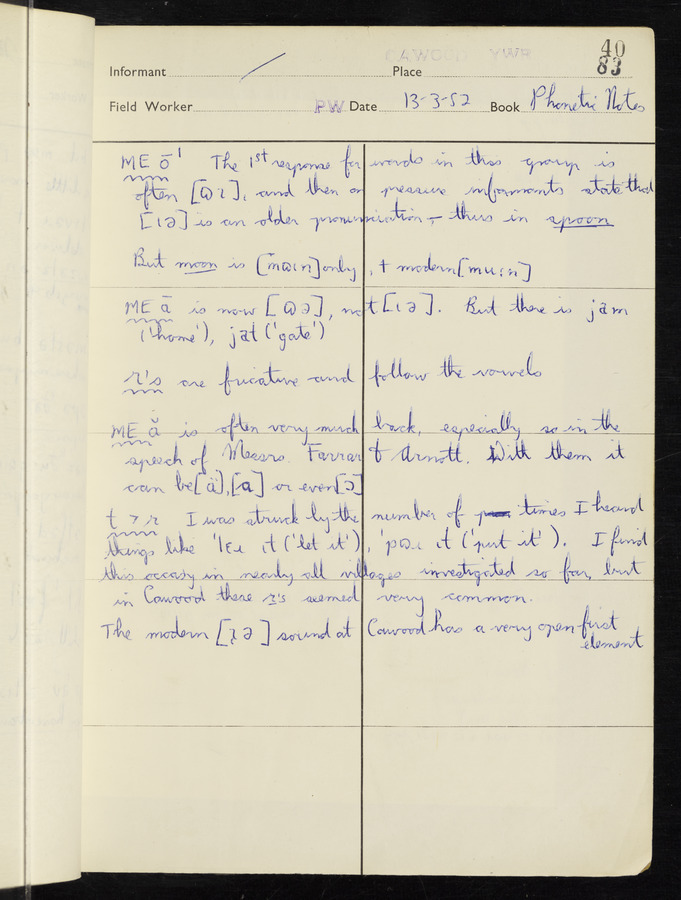 CAWOOD YWR
40
83
Informant Place
Field Worker PW Date 13-3-52 Book Phonetic Notes
ME ō¹ The 1st response for words in this group is
often [ɷɪ], and then on pressure informants state that
[ɪə] is an older pronunciation – thus in spoon
But moon is [mɷɪn] only, + modern [mu:n]
ME ā is now [ɷə], not [ɪə]. But there is jam
('home'), jat ('gate')
r's are fricative and follow the vowels
ME ă is often very much back, especially so in the
speech of Messrs. Farrar & Arnott. With them it
can be [ä], [a] or even [ɔ]
t > r I was struck by the number of times I heard
things like 'lɛɹ it ('let it'), 'pɷɹ it ('put it'). I find
this occasy in nearly all villages investigated so far, but
in Cawood these r's seemed very common.
The modern [ɪə] sound at Cawood has a very open first
element